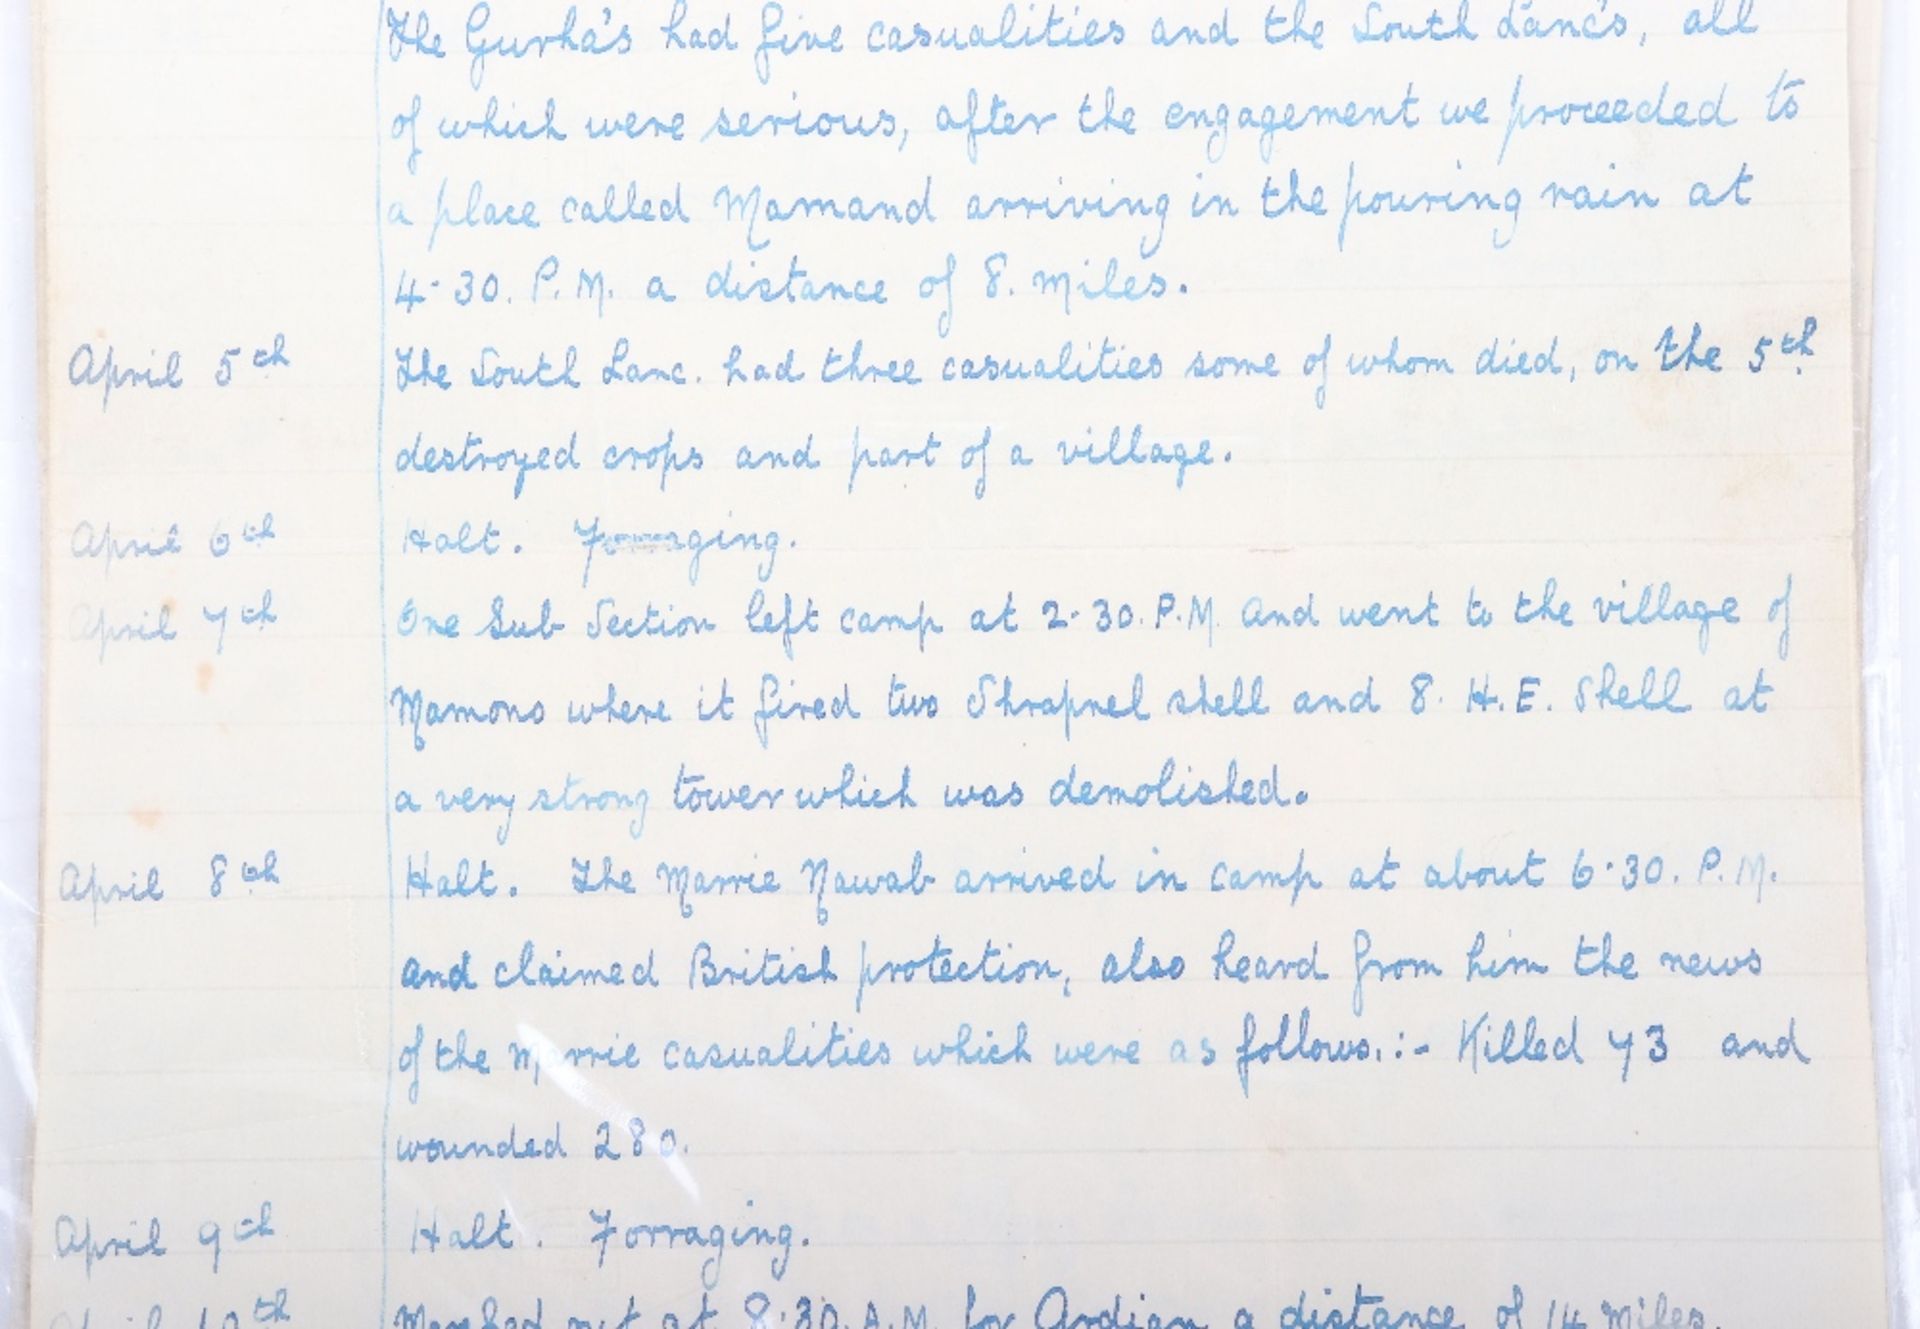 The Gurha's had five casualities and the South Lanc's, all
of which were serious, after the engagement we proceeded to
a place called Mamand arriving in the pouring rain at
4-30. P.M. a distance of 8. miles.
April 5th The South Lanc. had three casualities some of whom died, on the 5th
destroyed crops and part of a village.
April 6th Halt. Forraging.
April 7th One Sub Section left camp at 2-30. P.M. and went to the village of
Mamono where it fired two Shrapnel shell and 8. H.E. Shell at
a very strong tower which was demolished.
April 8th Halt. The Marrie Nawab arrived in camp at about 6-30. P.M.
and claimed British protection, also heard from him the news
of the Marrie casualities which were as follows.:- Killed 73 and
wounded 280.
April 9th Halt. Forraging.
April 10th Marched out at 8:30. A.M. for Ardian a distance of 14 miles.